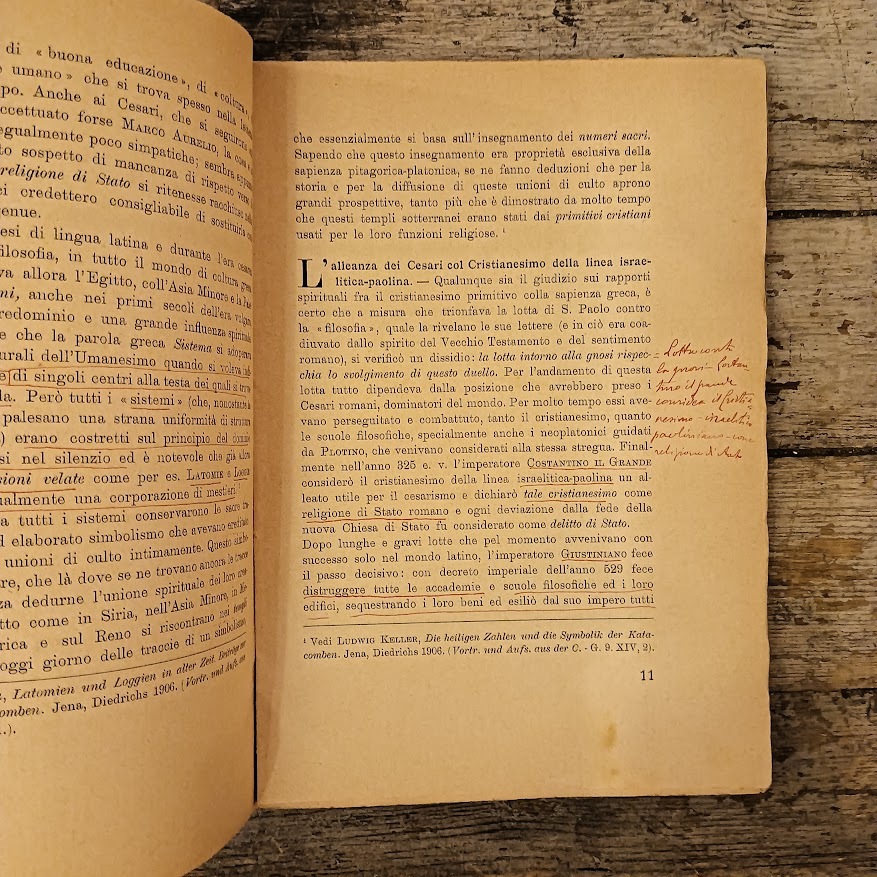 di « buona educazione », di « coltura »,
umano » che si trova spesso nella
po. Anche ai Cesari, che si seguirono
ccettuato forse MARCO AURELIO, la cosa
egualmente poco simpatiche; sembra
to sospetto di mancanza di rispetto verso
religione di Stato si ritenesse
ci credettero consigliabile di sostituirla
genue.
esi di lingua latina e durante l'era
ilosofia, in tutto il mondo di coltura greca
va allora l'Egitto, coll'Asia Minore e la
ni, anche nei primi secoli dell'era volgare
redominio e una grande influenza spirituale
e che la parola greca Sistema si adoperava
urali dell'Umanesimo quando si voleva
e di singoli centri alla testa dei quali si
la. Però tutti i « sistemi » (che, nonostante
palesano una strana uniformità di struttura
) erano costretti sul principio del
si nel silenzio ed è notevole che già allora
sioni velate come per es. LATOMIE e LOGGIE
ualmente una corporazione di mestieri
a tutti i sistemi conservarono le sacre
d elaborato simbolismo che avevano ereditato
unioni di culto intimamente. Questo
re, che là dove se ne trovano ancora le tracce
za dedurne l'unione spirituale dei loro
tto come in Siria, nell'Asia Minore, in
rica e sul Reno si riscontrano nei templi
oggi giorno delle traccie di un simbolismo,
, Latomien und Loggien in alter Zeit. Beiträge zur
omben. Jena, Diedrichs 1906. (Vortr. und Aufs. aus
.).
che essenzialmente si basa sull'insegnamento dei numeri sacri.
Sapendo che questo insegnamento era proprietà esclusiva della
sapienza pitagorica-platonica, se ne fanno deduzioni che per la
storia e per la diffusione di queste unioni di culto aprono
grandi prospettive, tanto più che è dimostrato da molto tempo
che questi templi sotterranei erano stati dai primitivi cristiani
usati per le loro funzioni religiose. ¹
L'alleanza dei Cesari col Cristianesimo della linea israe-
litica-paolina. — Qualunque sia il giudizio sui rapporti
spirituali fra il cristianesimo primitivo colla sapienza greca, è
certo che a misura che trionfava la lotta di S. Paolo contro
la « filosofia », quale la rivelano le sue lettere (e in ciò era coa-
diuvato dallo spirito del Vecchio Testamento e del sentimento
romano), si verificò un dissidio: la lotta intorno alla gnosi rispec-
chia lo svolgimento di questo duello. Per l'andamento di questa
lotta tutto dipendeva dalla posizione che avrebbero preso i
Cesari romani, dominatori del mondo. Per molto tempo essi ave-
vano perseguitato e combattuto, tanto il cristianesimo, quanto
le scuole filosofiche, specialmente anche i neoplatonici guidati
da PLOTINO, che venivano considerati alla stessa stregua. Final-
mente nell'anno 325 e. v. l'imperatore COSTANTINO IL GRANDE
considerò il cristianesimo della linea israelitica-paolina un al-
leato utile per il cesarismo e dichiarò tale cristianesimo come
religione di Stato romano e ogni deviazione dalla fede della
nuova Chiesa di Stato fu considerato come delitto di Stato.
Dopo lunghe e gravi lotte che pel momento avvenivano con
successo solo nel mondo latino, l'imperatore GIUSTINIANO fece
il passo decisivo: con decreto imperiale dell'anno 529 fece
distruggere tutte le accademie e scuole filosofiche ed i loro
edifici, sequestrando i loro beni ed esiliò dal suo impero tutti
= Lotta cont
la gnosi - Costan
tino il grande
considera il Cristia
nesimo - israelitico
paoliniano - come
religione di Stato
¹ Vedi LUDWIG KELLER, Die heiligen Zahlen und die Symbolik der Kata-
comben. Jena, Diedrichs 1906. (Vortr. und Aufs. aus der C. - G. 9. XIV, 2).
11